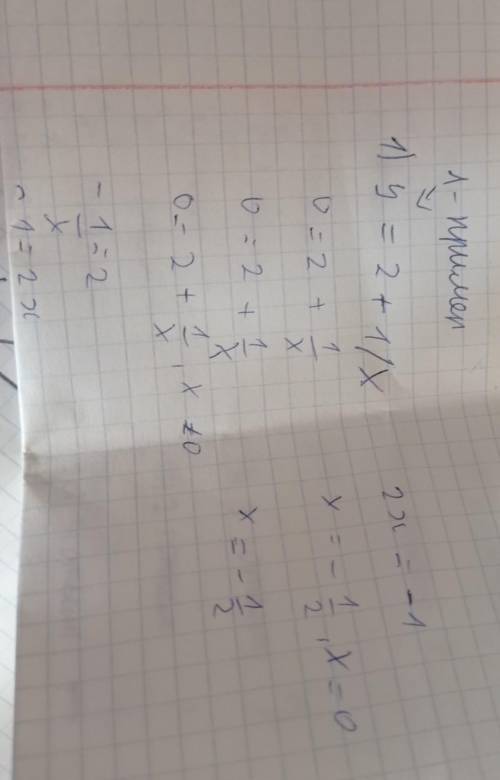 1-пример
1) y = 2 + 1/x
0 = 2 + 1/x
0 = 2 + 1/x
0 = 2 + 1/x, x ≠ 0
- 1/x = 2
- 1 = 2x
2x = -1
x = - 1/2, x = 0
x = - 1/2